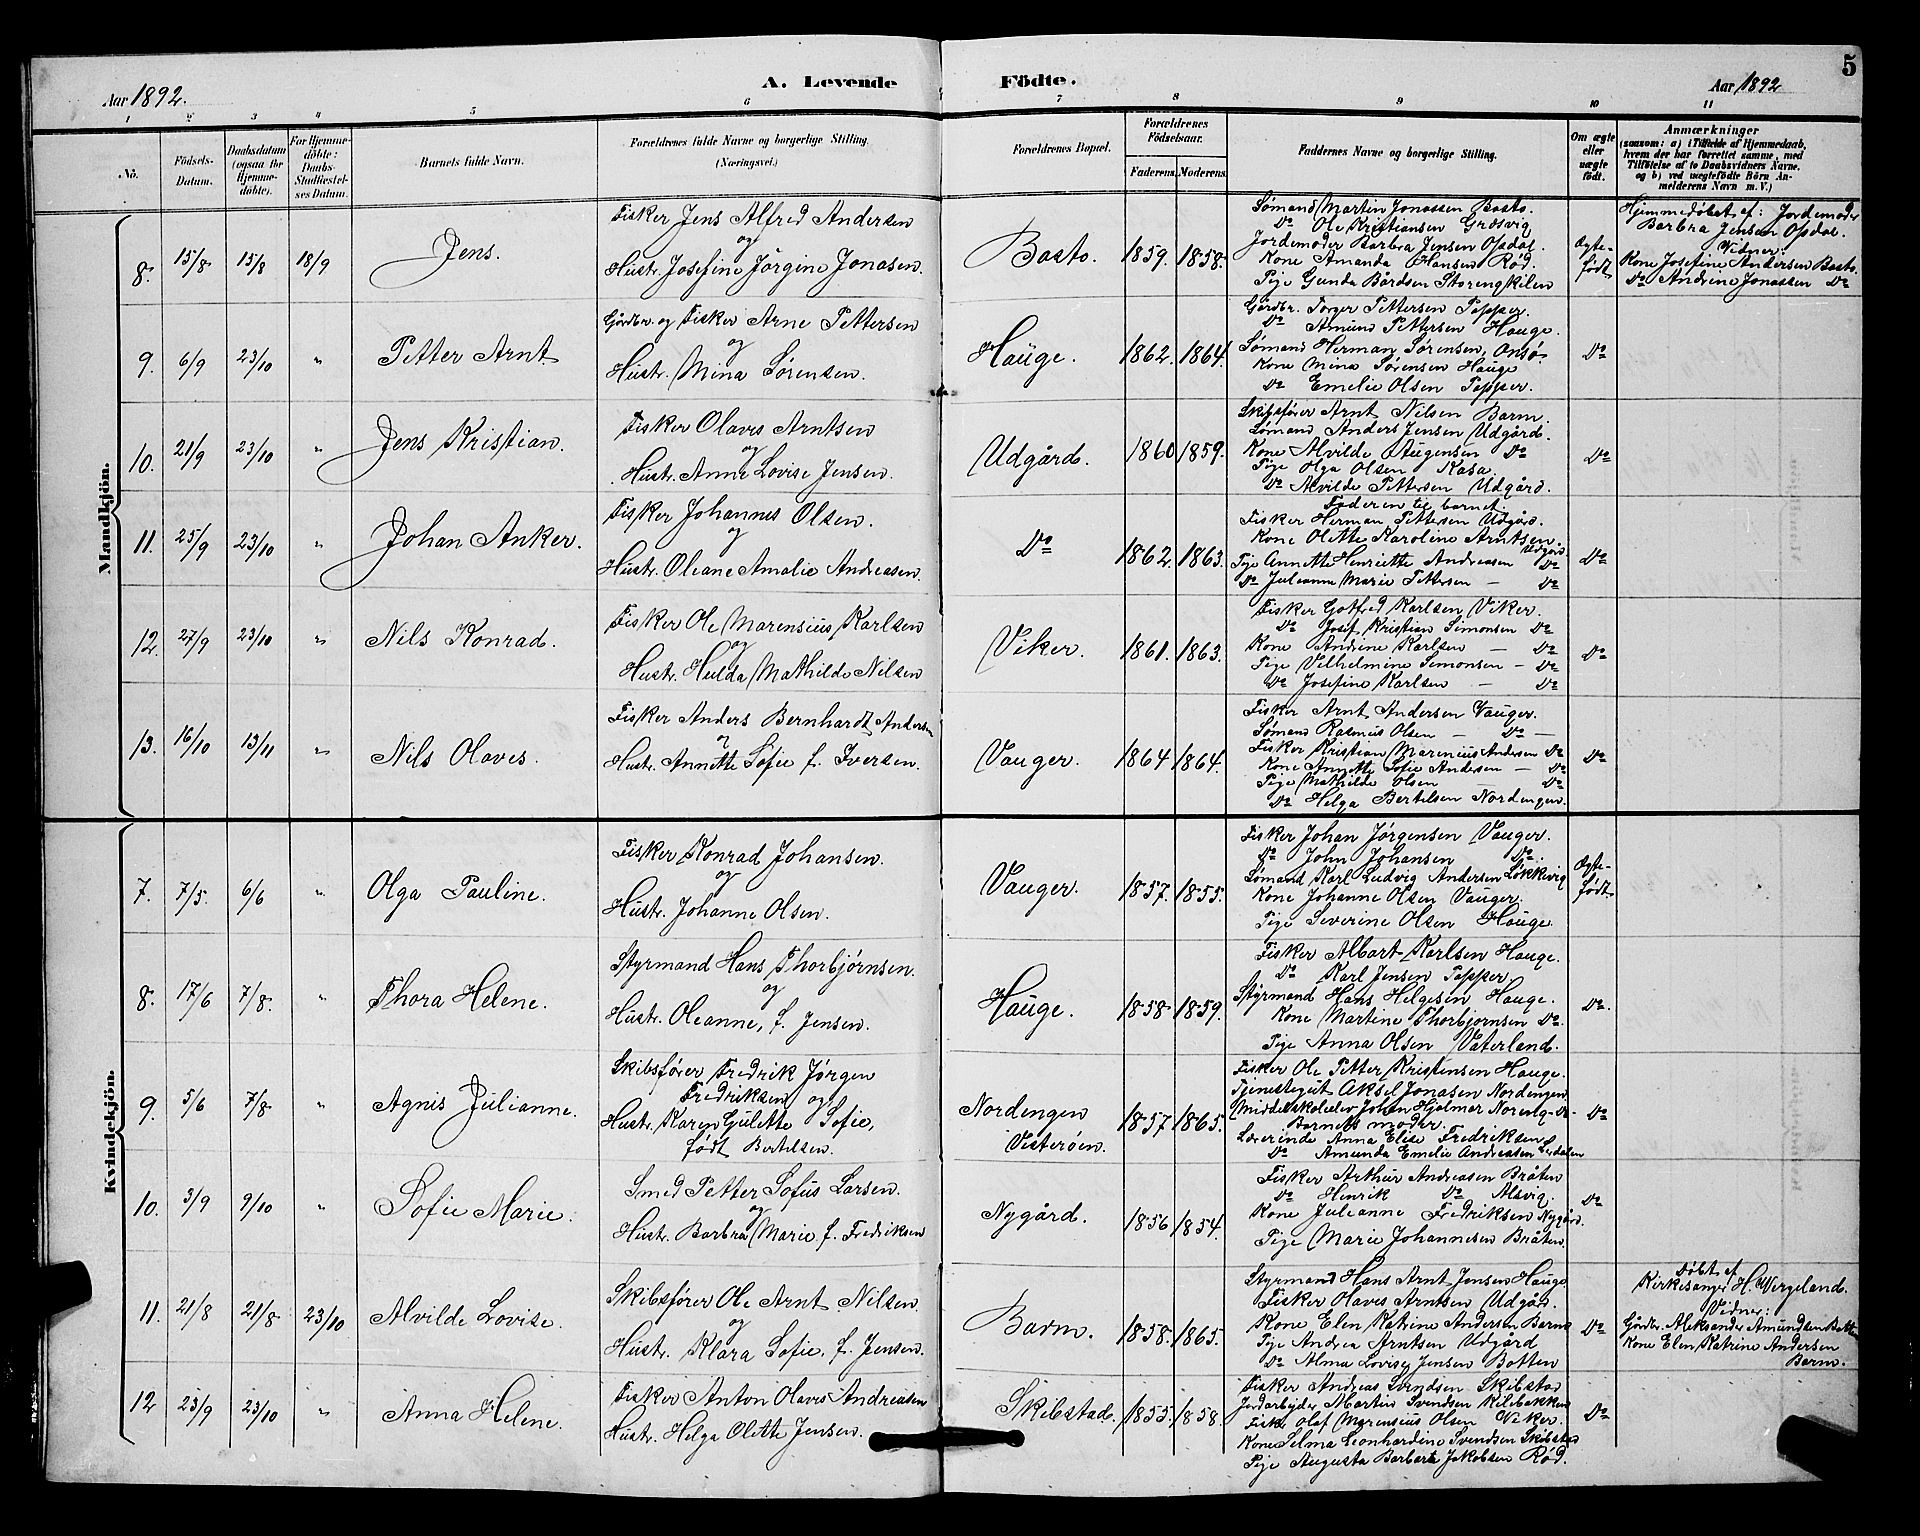 5
A. Levende Födte.
Aar 1892.
Aar 1892
1 2 3 4 5 6 7 8 9 10 11
No.
Födsels-Datum.
Daabsdatum (ogsaa for Hjemmedöbte).
For Hjemmedöbte: Daabs-Stadfæstelses Datum.
Barnets fulde Navn.
Forældrenes fulde Navne og borgerlige Stilling. (Næringsvei.)
Forældrenes Bopæl.
Forældrenes Födselsaar.
Faderens. Moderens.
Faddernes Navne og borgerlige Stilling.
Om ægte eller uægte födt.
Anmærkninger
(saasom: a) i Tilfælde af Hjemmedaab, hvem der har forrettet samme, med Tilföielse af to Daabsvidners Navne, og b) ved uægtefödte Börn Anmelderens Navn m. V.)
Mandkjön.
8. 15/8 15/8 18/9 Jens.
Fisker Jens Alfred Andersen
og
Hustr. Josefine Jörgine Jonasen.
Basto. 1859. 1858.
Sømand Martin Jonassen Basto.
Do Ole Kristiansen Grøsvig
Jordemoder Barbra Jensen Opdal.
Kone Amanda Hansen Rød.
Pige Gunda Bårdsen Storengkilen
Ægtefødt
Hjemmedøbet af: Jordemoder
Barbra Jensen Opdal.
Vidner:
Kone Josefine Andersen Basto.
Do Andrine Jonassen Do
9. 6/9 23/10 " Petter Arnt.
Gårdbr. og Fisker Arne Pettersen
og
Hustr. Mina Sørensen.
Hauge. 1862. 1864.
Gårdbr. Torger Pettersen Papper.
Do Amund Pettersen Hauge.
Sømand Herman Sørensen, Onsø.
Kone Mina Sørensen Hauge
Do Emelie Olsen Papper.
Do
10. 21/9 23/10 " Jens Kristian.
Fisker Olaves Arntsen
og
Hustr. Anne Lovise Jensen.
Udgård. 1860 1859.
Skibsfører Arnt Nilsen Barm.
Sømand Anders Jensen Udgård.
Kone Alvilde Augensen Do
Pige Olga Olsen Kasa.
Do Alvilde Pettersen Udgård.
Do
11. 25/9 23/10 " Johan Anker.
Fisker Johannes Olsen.
og
Hustr. Oleane Amalie Andreasen.
Do 1862. 1863.
Faderen til barnet.
Fisker Herman Pettersen Udgård.
Kone Olette Karoline Arntsen. Udgård
Pige Annette Henriette Andreasen Do
Do Julianne Marie Pettersen — Do
Do
12. 27/9 23/10 " Nils Konrad.
Fisker Ole Marensius Karlsen
og
Hustr. Hulda Mathilde Nilsen
Viker. 1861. 1863.
Fisker Gotfred Karlsen Viker.
Do Josef Kristian Simonsen Do
Kone Andrine Karlsen — Do
Pige Vilhelmine Simonsen — Do
Do Josefine Karlsen — Do
Do
13. 16/10 13/11 " Nils Olaves.
Fisker Anders Bernhardt Andersen
og
Hustr. Annette Sofie f. Iversen.
Vauger. 1864 1864.
Fisker Arnt Andersen Vauger.
Sømand Rasmus Olsen — Do —
Fisker Kristian Marenius Andersen Do
Kone Annette Sofie Andersen — Do
Pige Mathilde Olsen Do
Do Helga Bertelsen Nordengen.
Do
Kvindekjön.
7. 7/5 6/6 " Olga Pauline.
Fisker Konrad Johansen.
og
Hustr. Johanne Olsen.
Vauger. 1857. 1855.
Fisker Johan Jørgensen Vauger.
Do John Johansen Do.
Sømand Karl Ludvig Andersen Løkkevig
Kone Johanne Olsen Vauger.
Pige Severine Olsen Hauge.
Ægtefødt
8. 17/6 7/8. " Thora Helene.
Styrmand Hans Thorbjørnsen.
og
Hustr. Oleanne, f. Jensen.
Hauge. 1858 1859.
Fisker Albart Karlsen Hauge.
Do Karl Jensen Papper.
Styrmand Hans Helgesen Hauge.
Kone Martine Thorbjørnsen Do
Pige Anna Olsen Vaterland.
Do.
9. 5/6 7/8 " Agnis Julianne.
Skibsfører Fredrik Jørgen
Fredriksen og
Hustr. Karen Gulette Sofie,
født Bertelsen.
Nordengen
Vesterøen. 1857 1865.
Fisker Ole Petter Kristensen Hauge.
Tjenestegut Aksel Jonasen Nordengen
Middelskoleelev Johan Hjalmar Norenlg — Do —
Barnets moder.
Lærerinde Anna Elise Fredriksen
Do Amunda Emelie Andreasen Lerdalen
Do
10. 3/9 9/10 " Sofie Marie.
Smed Petter Sofus Larsen.
og
Hustr. Barbra Marie f. Fredriksen
Nygård. 1856 1854.
Fisker Arthur Andreasen Bråten
Do Henrik Do Alsvig.
Kone Julianne Fredriksen Nygård.
Pige Marie Johannesen Bråten.
Do
11. 21/8 21/8 23/10 Alvilde Lovise.
Skibsfører Ole Arnt Nilsen.
og
Hustr. Klara Sofie, f. Jensen.
Barm. 1858. 1865.
Styrmand Hans Arnt Jensen Hauge
Fisker Olaves Arntsen Udgård.
Kone Elen Katrine Andersen Barm
Pige Andrea Arntsen Udgård
Do Alma Lovise Jensen Botten
Do
Døbt af
Kirkesanger H. Wergeland.
Vidner:
Gårdbr. Aleksander Amundsen Botten
Kone Elen Katrine Andersen
Barm.
12 23/9 23/10 " Anna Helene.
Fisker Anton Olaves Andreasen
Hustr. Helga Olette Jensen.
Skibstad. 1855 1858.
Fisker Andreas Svendsen Skibstad
Jordarbejder Martin Svendsen Kilebakken
Fisker Olaf Marensius Olsen Viker.
Kone Selma Leonhardine Svendsen Skibstad
Pige Augusta Barbara Jakobsen Rød.
Do